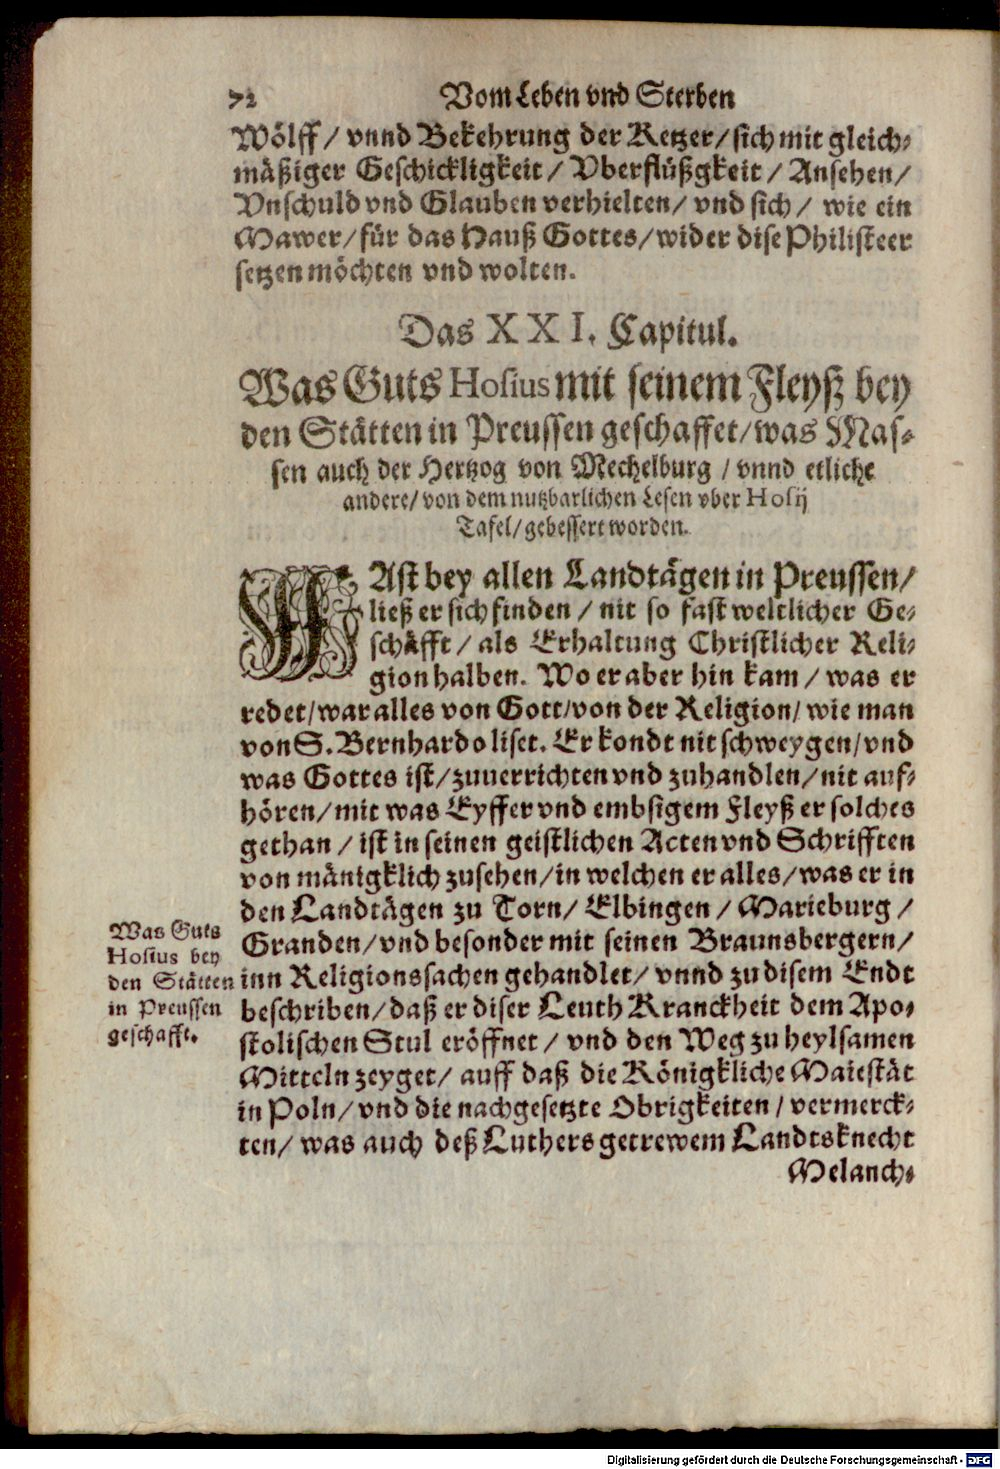 72 Vom Leben vnd Sterben
Wölff / vnnd Bekehrung der Ketzer / sich mit gleich-
mäßiger Geschickligkeit / Vberflüßgkeit / Ansehen /
Vnschuld vnd Glauben verhielten / vnd sich / wie ein
Mawer / für das Hauß Gottes / wider dise Philisteer
setzen möchten vnd wolten.
Das XXI. Capitul.
Was Guts Hosius mit seinem Fleyß bey
den Stätten in Preussen geschaffet / was Mas-
sen auch der Hertzog von Mechelburg / vnnd etliche
andere / von dem nutzbarlichen Lesen vber Hosij
Tafel / gebessert worden.
FAst bey allen Landtägen in Preussen /
ließ er sich finden / nit so fast weltlicher Ge-
schäfft / als Erhaltung Christlicher Reli-
gion halben. Wo er aber hin kam / was er
redet / war alles von Gott / von der Religion / wie man
von S. Bernhardo liset. Er kondt nit schweygen / vnd
was Gottes ist / zuuerrichten vnd zuhandlen / nit auf-
hören / mit was Eyffer vnd embsigem Fleyß er solches
gethan / ist in seinen geistlichen Acten vnd Schrifften
von mänigklich zusehen / in welchen er alles / was er in
den Landtägen zu Torn / Elbingen / Marieburg /
Granden / vnd besonder mit seinen Braunsbergern /
inn Religionssachen gehandlet / vnnd zu disem Endt
beschriben / daß er diser Leuth Kranckheit dem Apo-
stolischen Stul eröffnet / vnd den Weg zu heylsamen
Mitteln zeyget / auff daß die Königkliche Maiestät
in Poln / vnd die nachgesetzte Obrigkeiten / vermerck-
ten / was auch deß Luthers getrewem Landtsknecht
Melanch-
Was Guts
Hosius bey
den Stätten
in Preussen
geschafft.
Digitalisierung gefördert durch die Deutsche Forschungsgemeinschaft - DFG